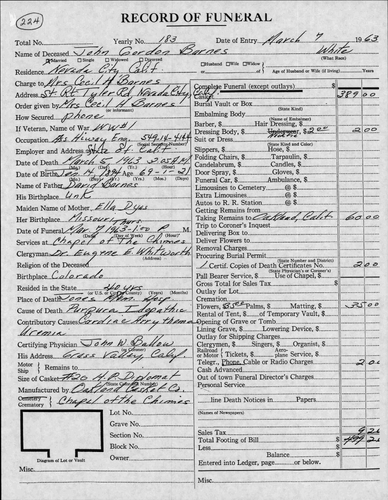 224
RECORD OF FUNERAL
Total No. Yearly No. 183 Date of Entry March 7 1963
Name of Deceased John Gordon Barnes White
(What Race)
Married Single Widowed Divorced Husband Wife Widow Age of Husband or Wife (if living) Years
Residence Nevada City Calif
Charge to Mrs Cecil H Barnes
Address St Rt Tyler Rd, Nevada City, Calif
Order given by Mrs Cecil H Barnes
How Secured phone
If Veteran, Name of War WW#1
(Social Security Number)
Employer and Address State of Calif
Date of Death March 5, 1963 2:05 PM
Date of Birth Jan 14 1894 Age 69-1-21
(Yrs.) (Mos.) (Days)
Name of Father David Barnes
His Birthplace Unk
Maiden Name of Mother Ella Dyas
Her Birthplace Missouri
Date of Funeral Mar 7 1963-1:00 P M
Services at Chapel of The Chimes
Clergyman Dr. Eugene E Whitworth
Religion of the Deceased
Birthplace Colorado
Resided in the State 40 yrs
(Months)
Place of Death Jones Mem. Hosp
Cause of Death Purpura Idiopathic
Contributory Causes Cardiac Arrythema
Uremia
Certifying Physician John W Ballow
His Address Grass Valley, Calif
Motor Ship Remains to
Size of Casket #20 H.P. Diplomat
(State Color and Number)
Manufactured by Oakland Casket Co.
Cemetery Crematory Chapel of the Chimes
Lot No.
Grave No.
Section No.
Block No.
Owner
Diagram of Lot or Vault
Misc.
Complete Funeral (except outlays) $ 389 00
Burial Vault or Box
(State Kind)
Embalming Body
Barber, $ Hair Dressing, $
Dressing Body, $ Underwear, $ 2.00 2 00
Suit or Dress
(State Kind and Color)
Slippers, $ Hose, $
Folding Chairs, $ Tarpaulin, $
Candelabrum, $ Candles, $
Door Spray, $ Gloves, $
Funeral Car, $ Ambulance, $
Limousines to Cemetery @ $
Extra Limousines @ $
Autos to R. R. Station @ $
Getting Remains from
Taking Remains to Oakland, Calif 60 00
Trip to Coroner's Inquest
Delivering Box to
Deliver Flowers to
Removal Charges
Procuring Burial Permit
(State Number and District)
1 Certif. Copies of Death Certificates No. 2 00
(State Physician's or Coroner's)
Pall Bearer Service, $ Use of Chapel, $
Gross Total for Sales Tax
Outlay for Lot
Cremation
Flowers, $ 35.00 Palms, $ Matting, $ 35 00
Rental of Tent, $ of Temporary Vault, $
Opening of Grave or Tomb
Lining Grave, $ Lowering Device, $
Outlay for Shipping Charges
Clergyman, $ Singers, $ Organist, $
Railroad or Motor Tickets, $ Aeroplane Service, $
Telegr., Phone, Cable or Radio Charges
Cash Advanced
Out of town Funeral Director's Charges
Personal Service
line Death Notices in Papers
(Names of Newspapers)
Sales Tax
Total Footing of Bill $
Less
Balance $
Entered into Ledger, page or below.
Misc.